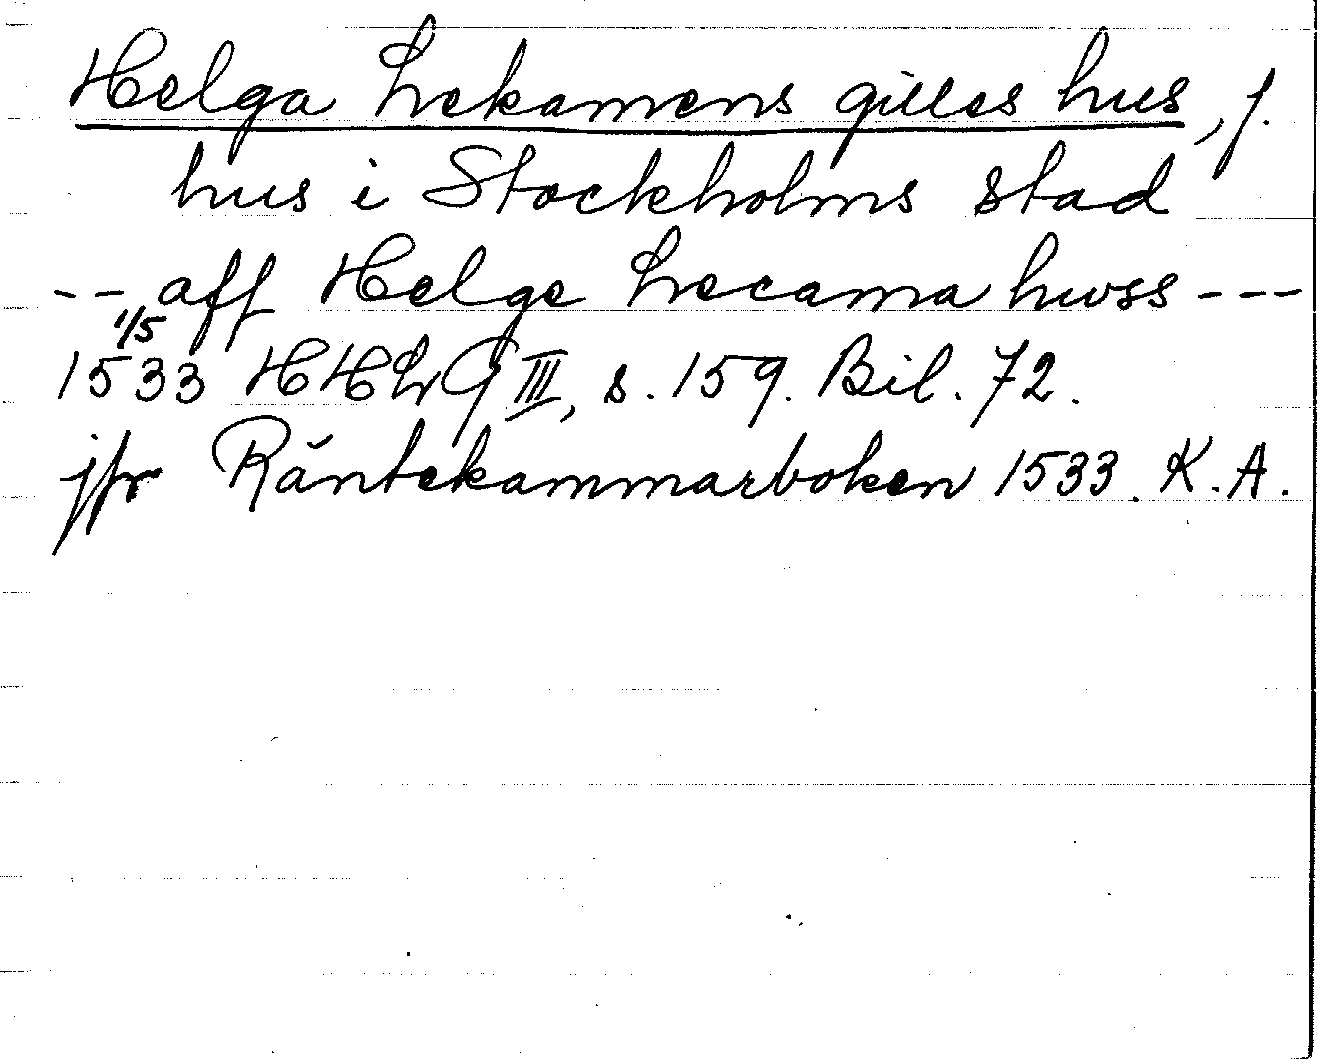 Helga Lekamens gilles hus, f.
hus i Stockholms stad
-- aff Helge Lecama hwss ---
1/5
1533 HHLG III, s. 159. Bil. 72.
jfr Räntekammarboken 1533. K.A.